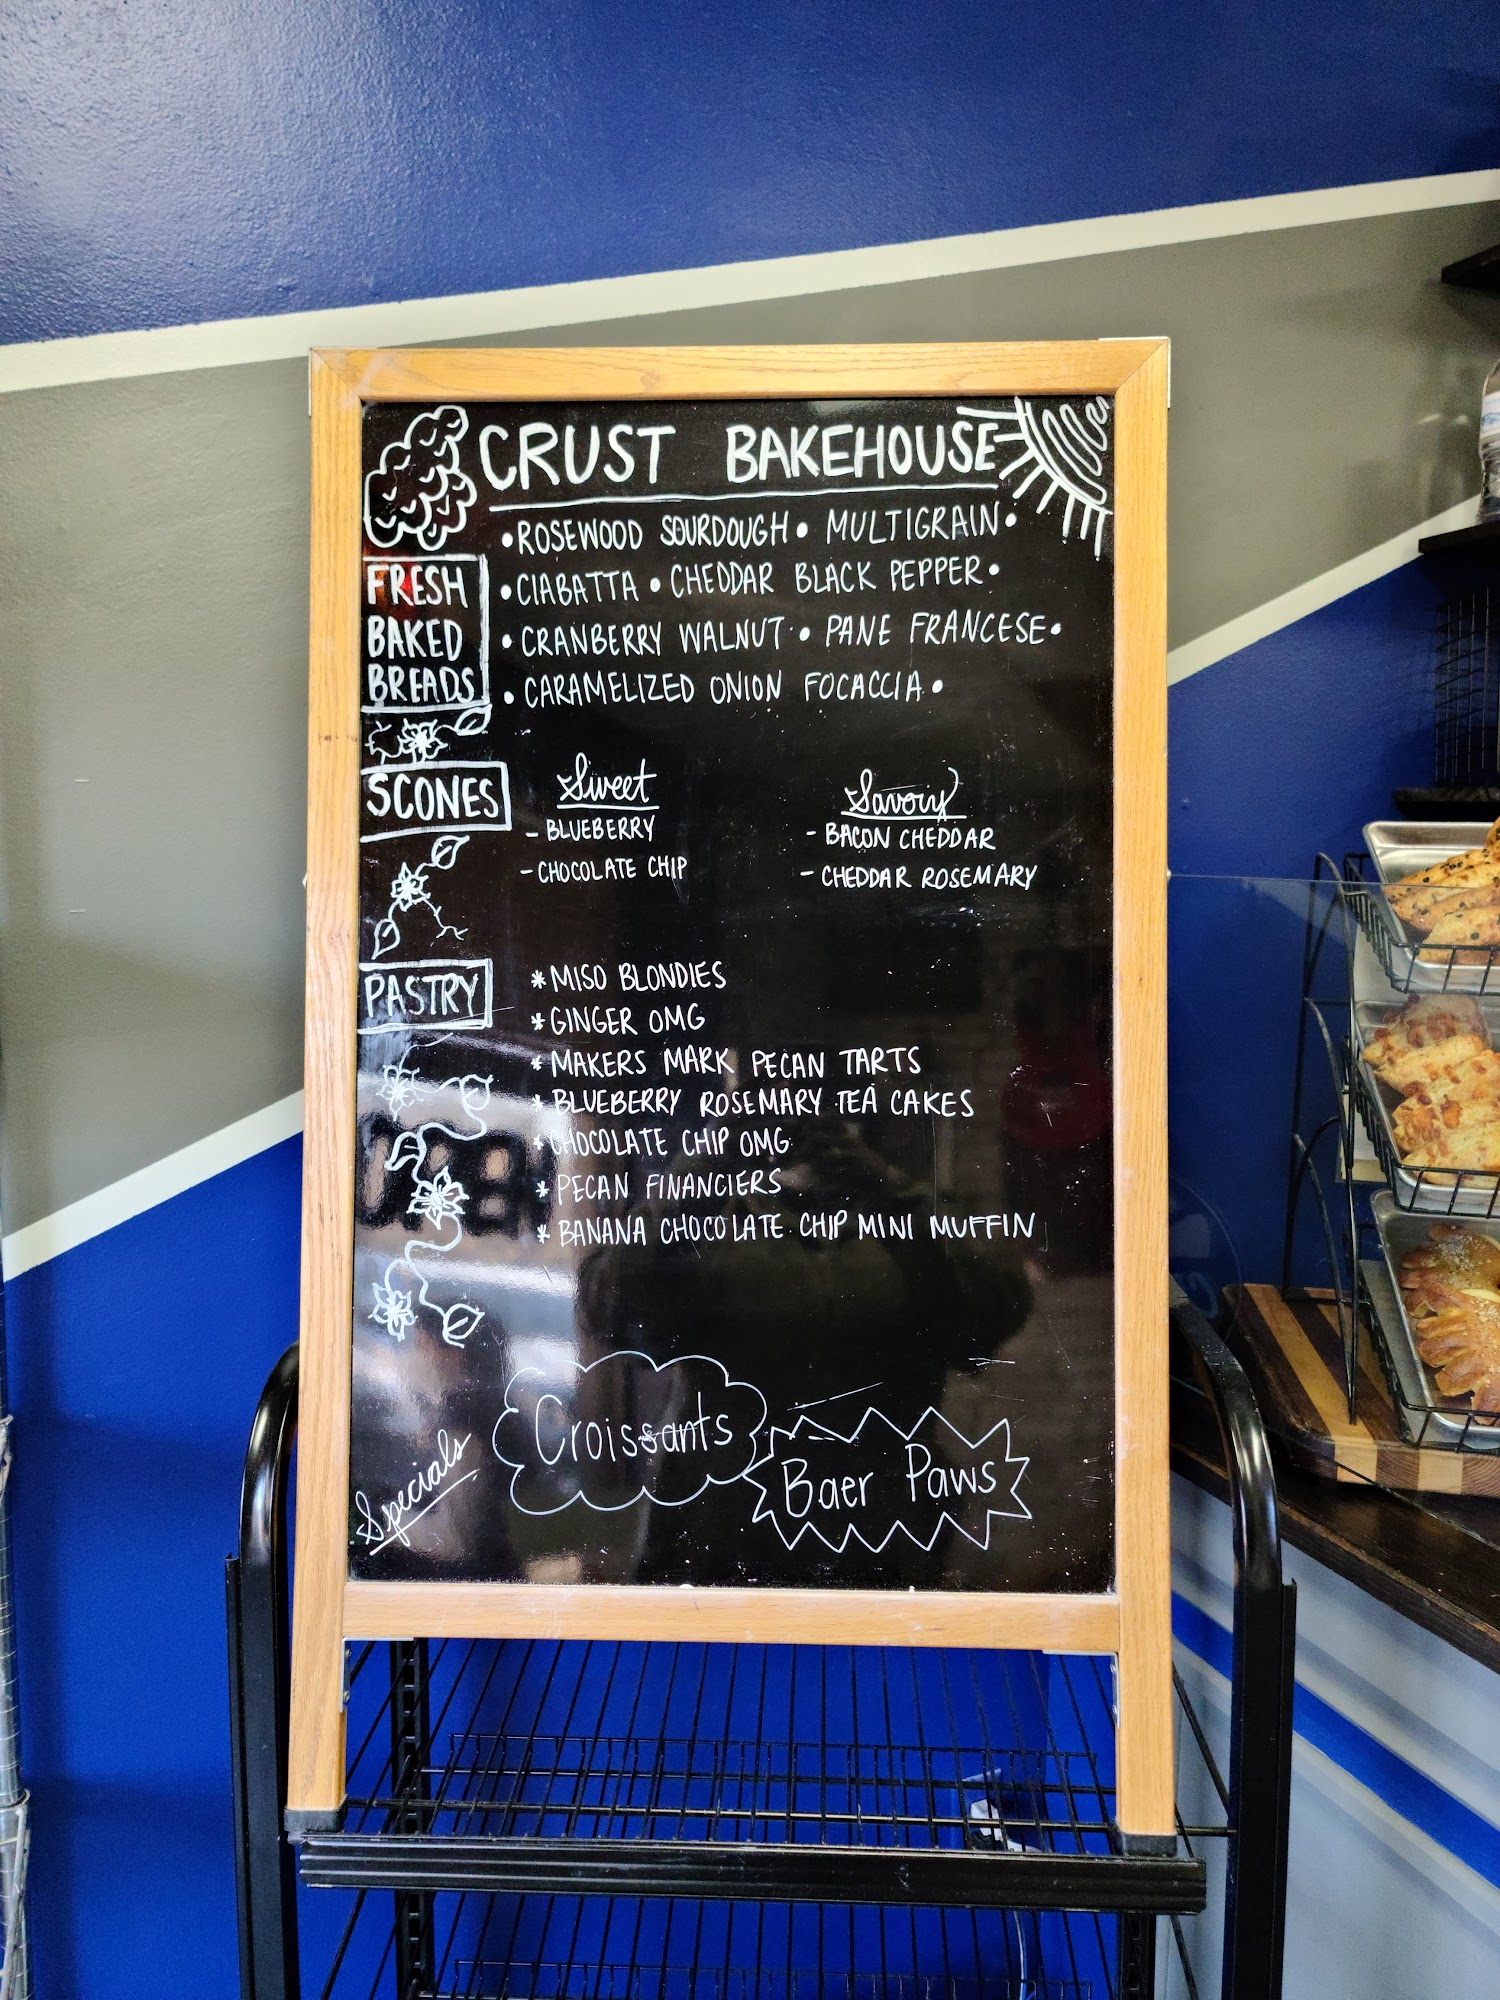 CRUST BAKEHOUSE
FRESH
BAKED
BREADS
•ROSEWOOD SOURDOUGH• MULTIGRAIN•
•CIABATTA • CHEDDAR BLACK PEPPER•
•CRANBERRY WALNUT • PANE FRANCESE•
• CARAMELIZED ONION FOCACCIA •
SCONES
Sweet
- BLUEBERRY
- CHOCOLATE CHIP
Savory
- BACON CHEDDAR
- CHEDDAR ROSEMARY
PASTRY
* MISO BLONDIES
* GINGER OMG
* MAKERS MARK PECAN TARTS
* BLUEBERRY ROSEMARY TEA CAKES
* CHOCOLATE CHIP OMG
* PECAN FINANCIERS
* BANANA CHOCOLATE CHIP MINI MUFFIN
Specials
Croissants
Baer Paws